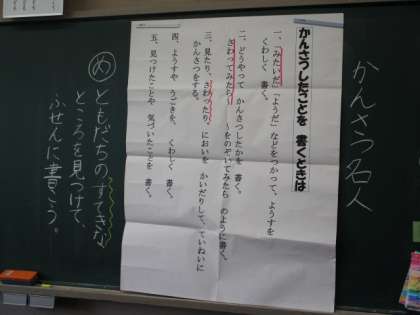 かんさつ名人
かんさつしたことを 書くときは
一、「みたいだ」「ようだ」などをつかって、ようすを
くわしく 書く。
二、どうやって かんさつしたかを 書く。
さわってみたら～ ～をのぞいてみたら のように書く。
三、見たり、さわったり、においを かいだりして、ていねいに
かんさつをする。
四、ようすや うごきを、 くわしく 書く。
五、見つけたことや 気づいたことを 書く。
め ともだちの すてきな
ところを見つけて、
ふせんに書こう。